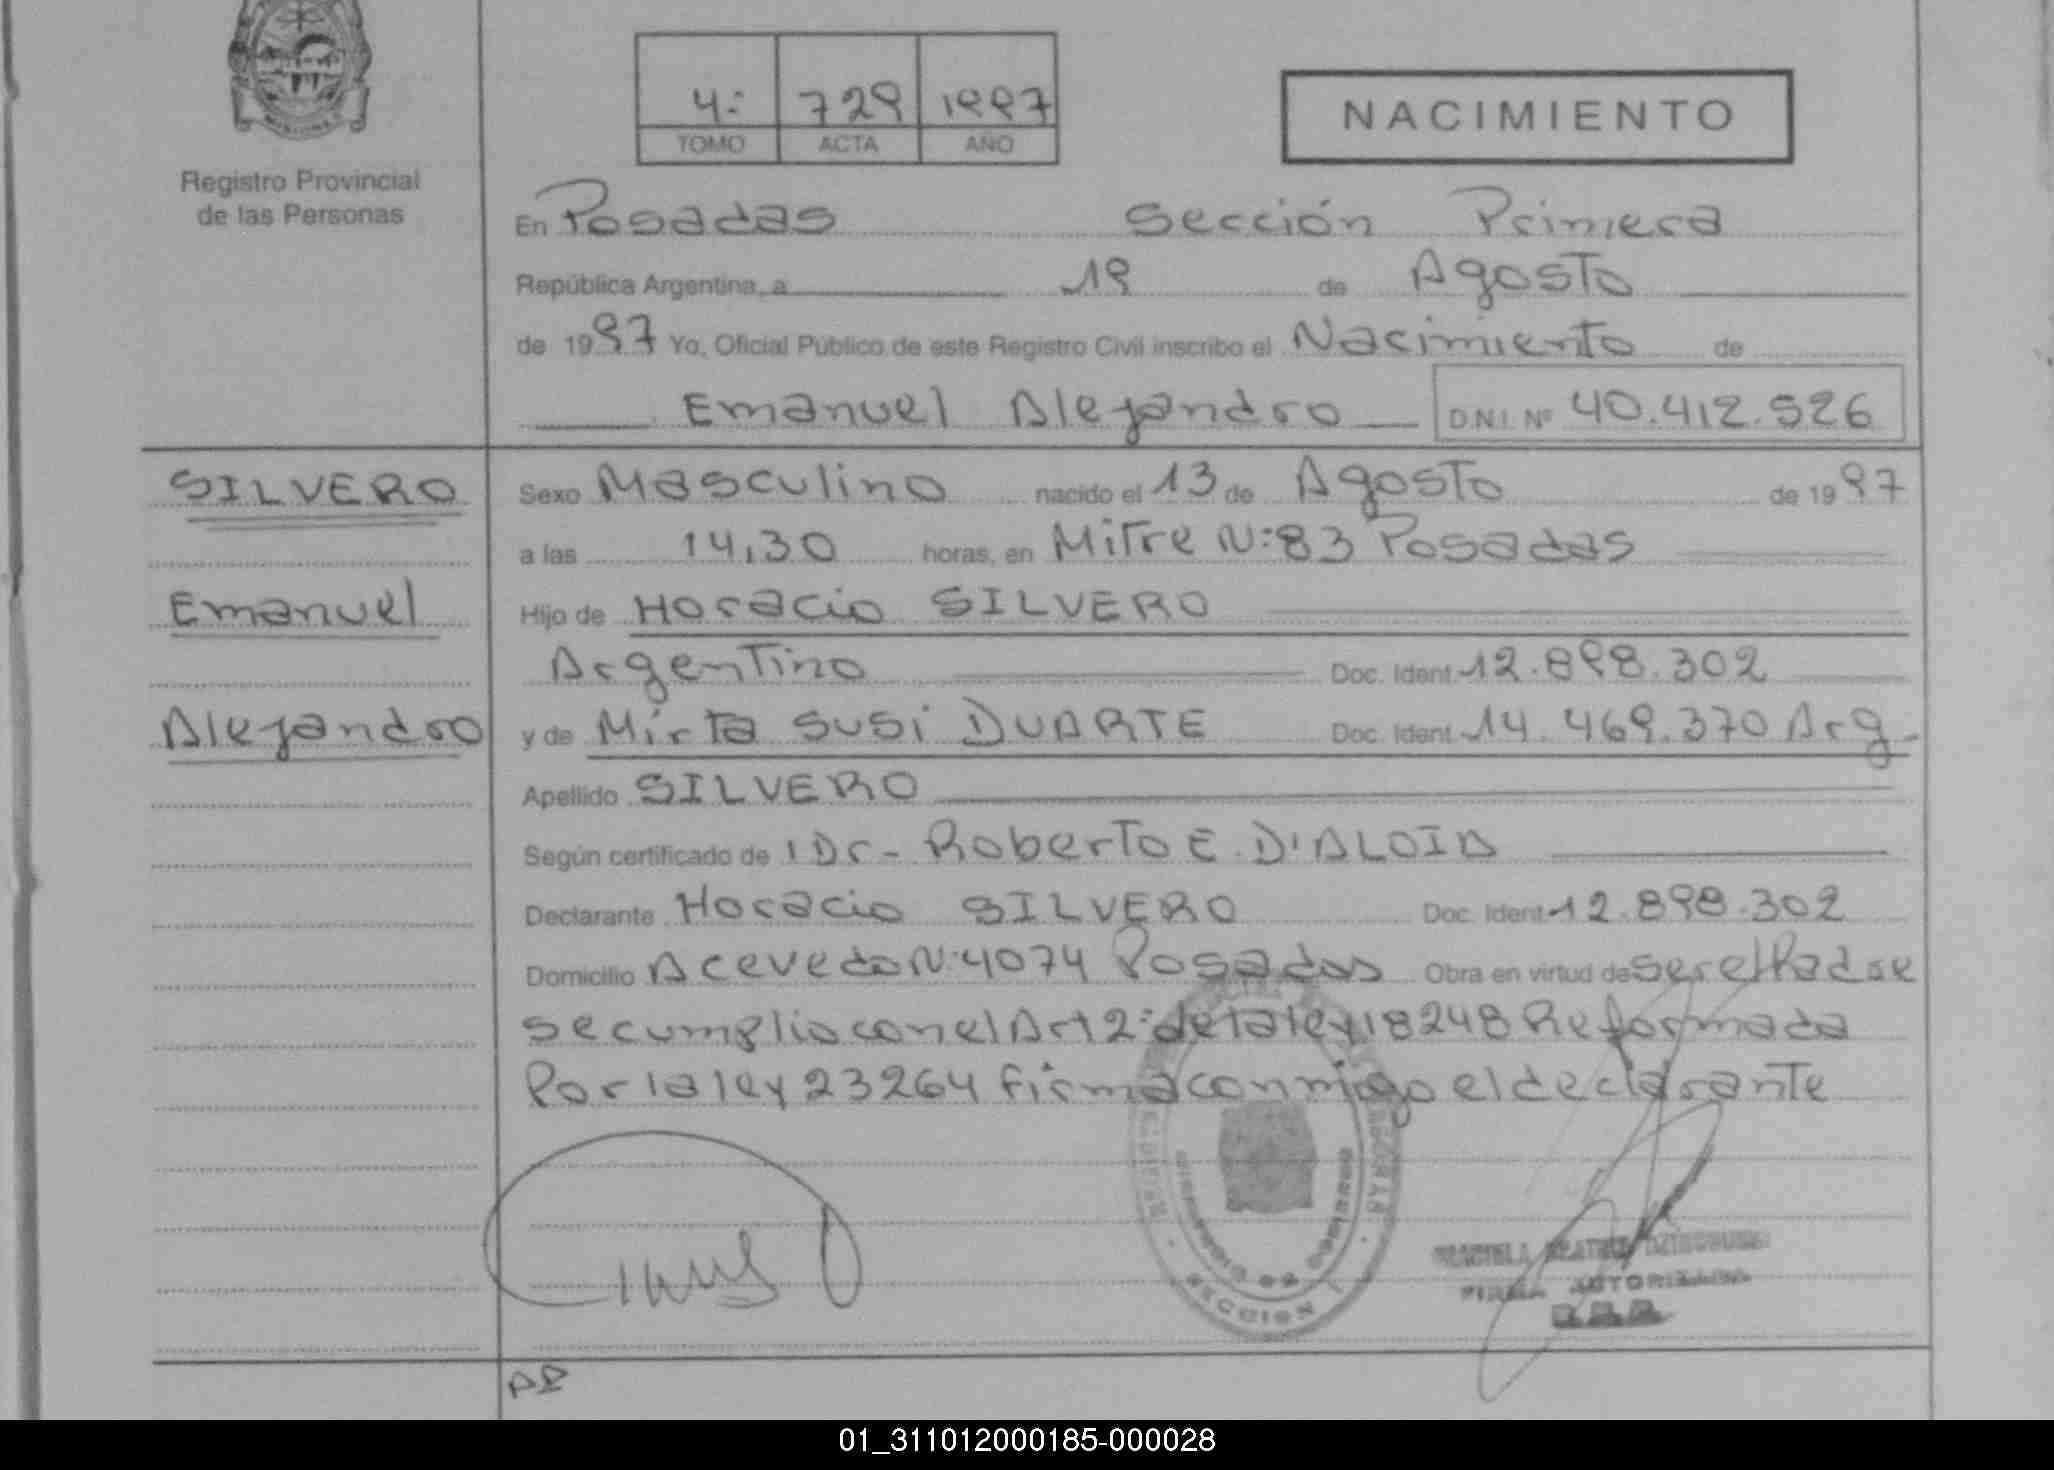 MISIONES
Registro Provincial
de las Personas
4: 729 1997
TOMO ACTA AÑO
NACIMIENTO
En Posadas Sección Primera
República Argentina, a 19 de Agosto
de 1997 Yo, Oficial Público de este Registro Civil inscribo el Nacimiento de
Emanuel Alejandro D.N.I. Nº 40.412.926
SILVERO Sexo Masculino nacido el 13 de Agosto de 1997
a las 14,30 horas, en Mitre N:83 Posadas
Emanuel Hijo de Horacio SILVERO
Argentino Doc. Ident 12.898.302
Alejandro y de Mirta SUSi DUARTE Doc. Ident 14.469.370 Arg.
Apellido SILVERO
Según certificado de 1 Dr- Roberto E. D'ALOIA
Declarante Horacio SILVERO Doc. Ident 12.898.302
Domicilio Acevedo N:4074 Posadas Obra en virtud de ser el Padre
se cumplio con el Art 2: de la ley 18248 Reformada
Por la ley 23264 firma conmigo el declarante
SECCION 1
GRACIELA BEATRIZ
FIRMA AUTORIZADA
01_311012000185-000028